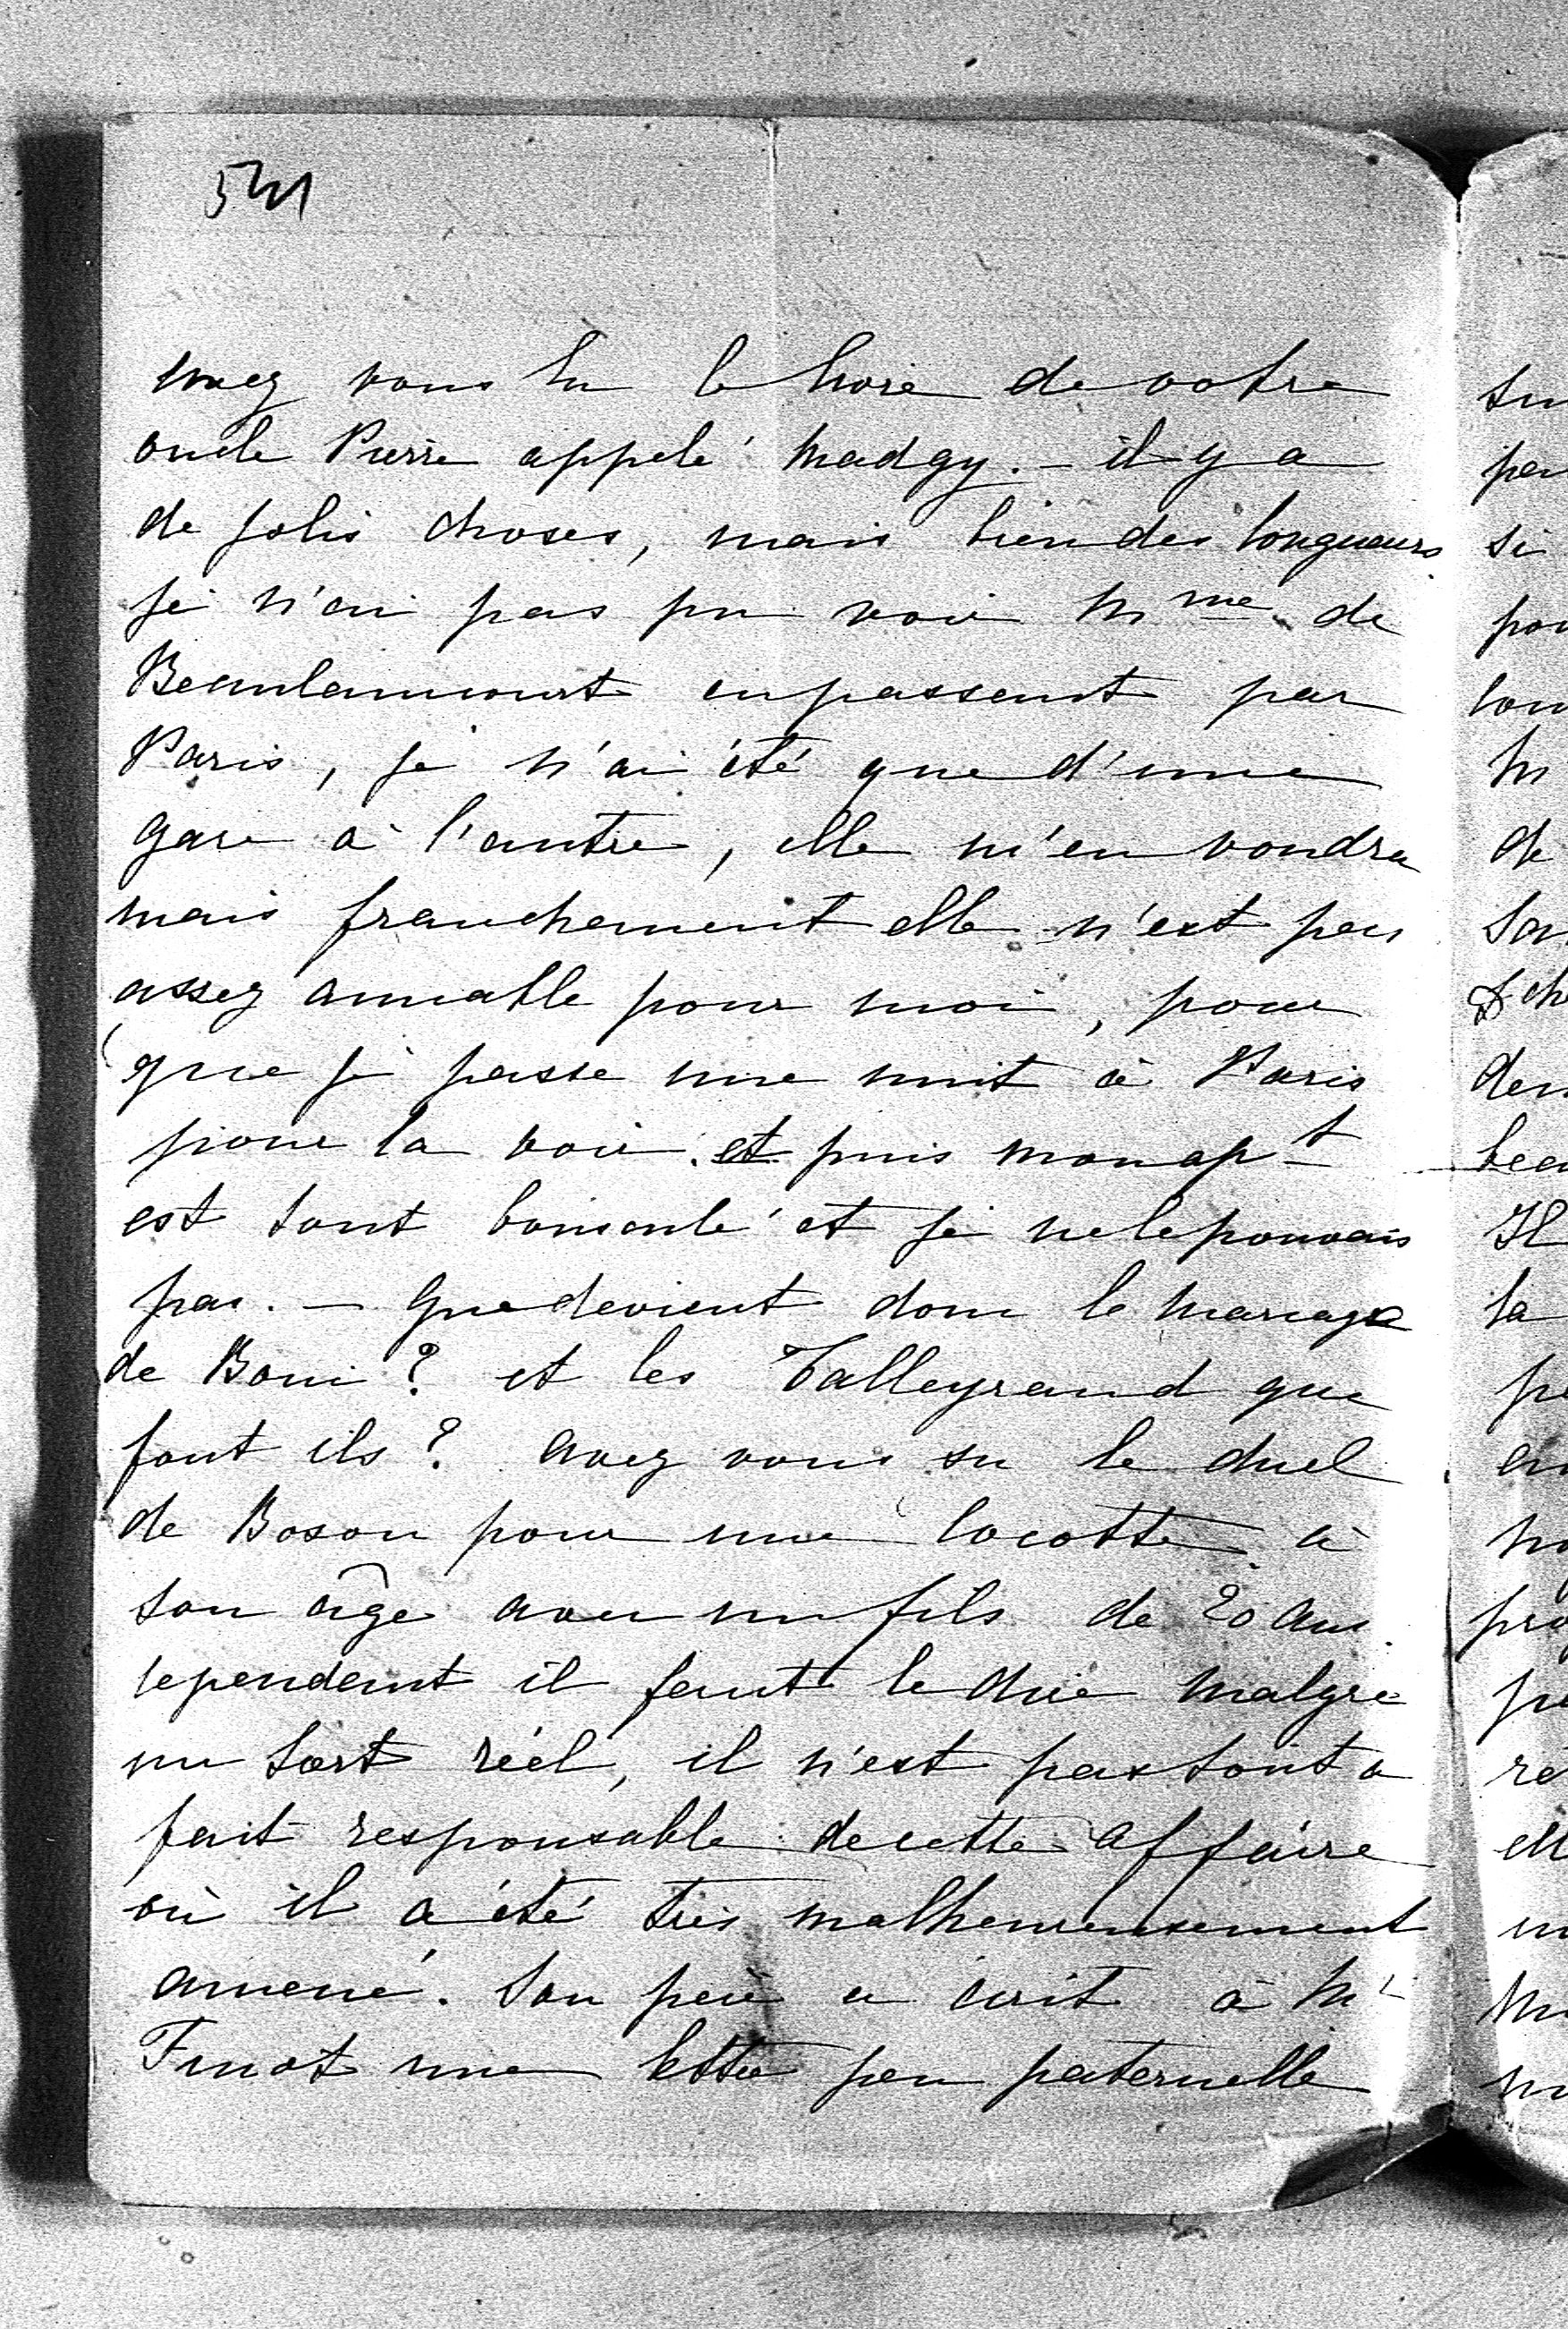 541
avez vous lu le livre de votre
oncle Pierre appelé Madgy. — il y a
de jolis choses, mais bien des longueurs
je n'ai pas pu voir Mme de
Beaulaincourt en passant par
Paris, je n'ai été que d'une
gare à l'autre, elle m'en voudra
mais franchement elle n'est pas
assez aimable pour moi, pour
que je passe une nuit à Paris
pour la voir. et puis mon apt
est tout et je ne le pouvais
pas. — Que devient donc le mariage
de Boni? et les Talleyrand que
font ils? avez vous su le duel
de Boson pour une cocotte à
son âge avec un fils de 20 ans.
cependant il faut le dire malgré
un tort réel, il n'est pas tout a
fait responsable de cette affaire
où il a été très malheureusement
amené. Son père a écrit à Mr
une lettre peu paternelle